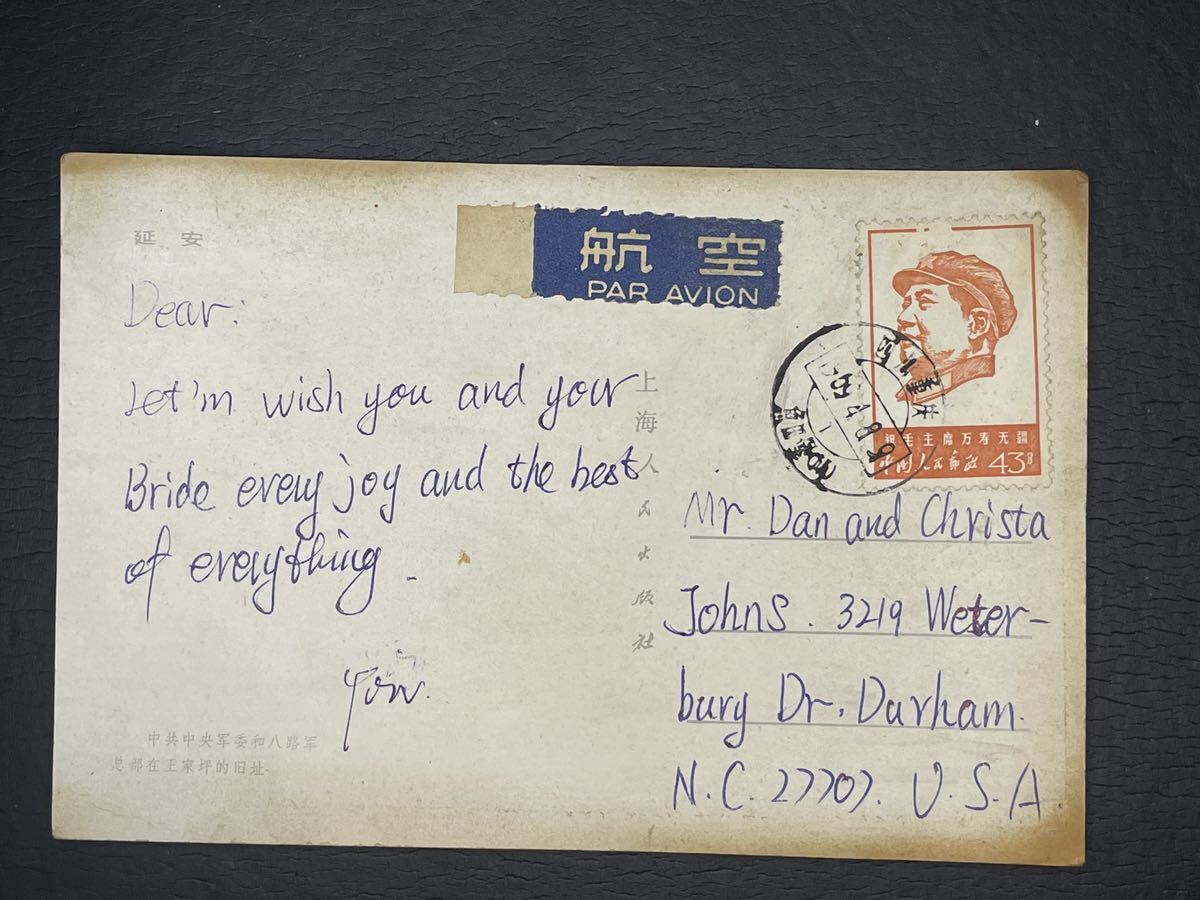 延安
航空
PAR AVION
Dear:
Let'm wish you and your
Bride every joy and the best
of everything.
上海人民出版社
祝毛主席万寿无疆
中国人民邮政 43⁸
Mr. Dan and Christa
Johns. 3219 Weter-
bury Dr. Durham.
N.C. 27707. U.S.A.
中共中央军委和八路军
总部在王家坪的旧址